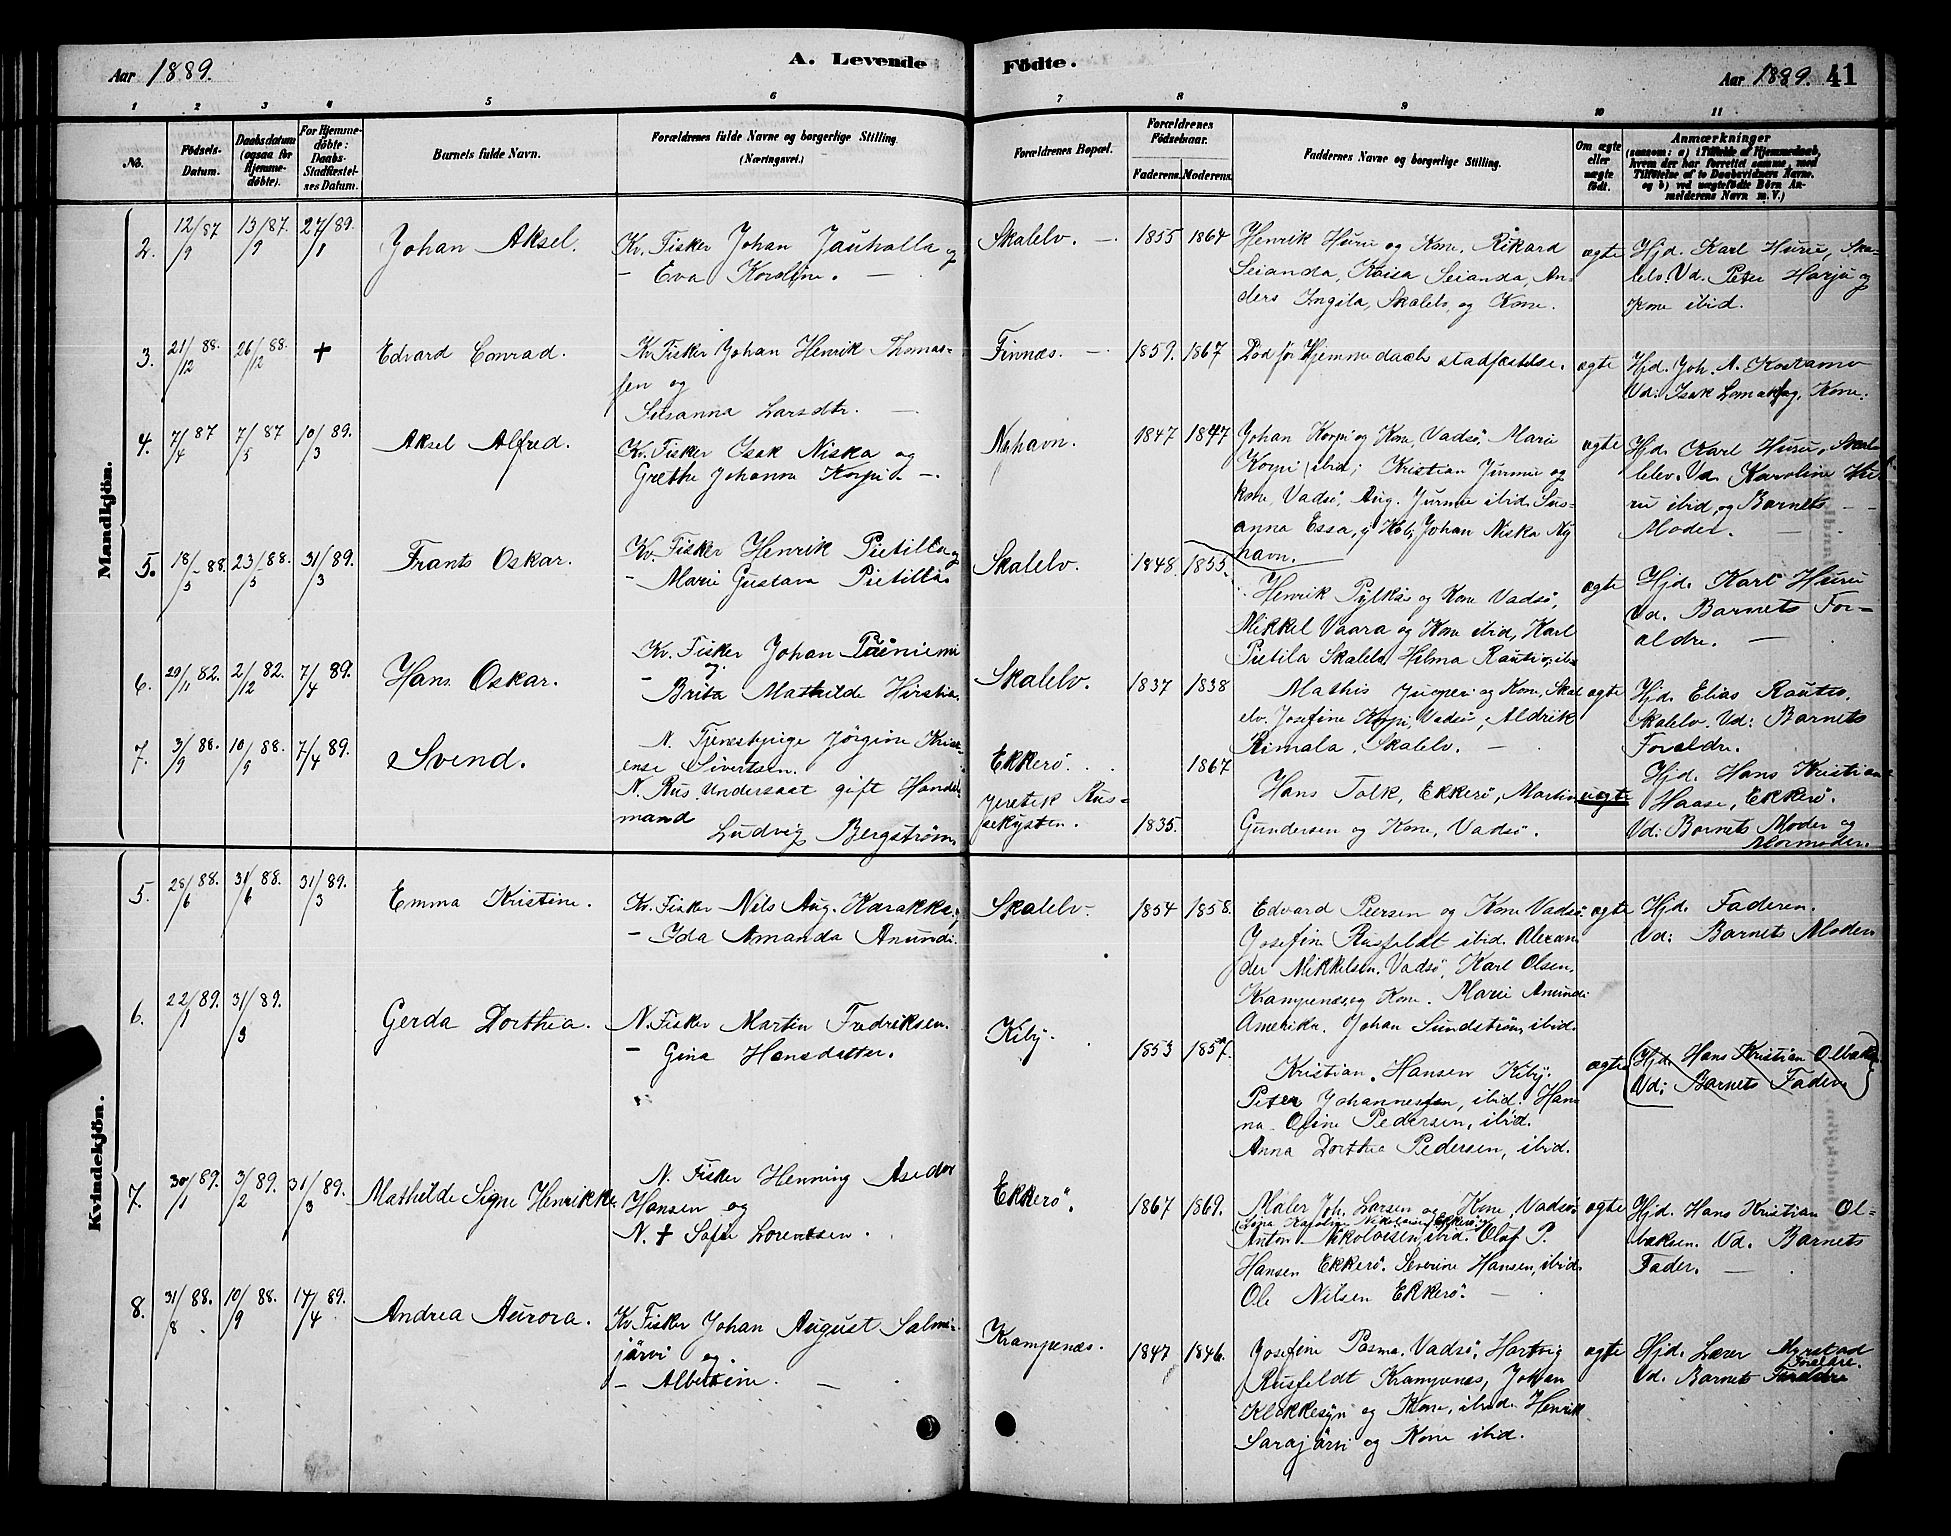 Aar 1889.
A. Levende Födte.
Aar 1889. 41
1 2 3 4 5 6 7 8 9 10 11
No.
Födsels-Datum.
Daabsdatum (ogsaa for Hjemme-döbte).
For Hjemme-döbte: Daabs-Stadfæstel-ses Datum.
Barnets fulde Navn.
Forældrenes fulde Navne og borgerlige Stilling
(Næringsvei.)
Forældrenes Bopæl.
Forældrenes Födselsaar.
Faderens. Moderens.
Faddernes Navne og borgerlige Stilling.
Om ægte eller uægte födt.
Anmærkninger
(saasom: a) i Tilfælde af Hjemmedaab,
hvem der har forrettet samme, med
Tilföielse af to Daabsvidners Navne.
og b) ved uægtefödte Börn An-
melderens Navn m. V.)
Mandkjön.
2. 12/9 87 13/9 87. 27/1 89. Johan Aksel.
Kv. Fisker Johan Jauhalla og
– Eva Karoline. –
Skalelv. – 1855 1864
Henrik Huru og Kone, Rikard
Seianda, Kaisa Seianda, An-
ders Ingila, Skalelv, og Kone.
ægte
Hjd. Karl Huru, Ska-
lelv. Vd. Peter Harju og
Kone ibid.
3. 21/12 88. 26/12 88. + Edvard Conrad.
Kv. Fisker Johan Henrik Thomas-
sen og
Susanna Larsdtr. –
Finnæs. – 1859. 1867
Död för Hjemmedaabs stadfæstelse.
ægte
Hjd. Joh. A. Kostamo
Vd: Isak Lomakka og Kone.
4. 7/4 87 7/5 87 10/3 89. Aksel Alfred.
Kv. Fisker Isak Niska og
Grethe Johanna Korpi. –
Nyhavn. 1847 1847
Johan Korpi og Kone, Vadsö, Marie
Korpi, ibid; Kristian Jurmu og
Kone, Vadsö, Aug. Jurmu ibid. Sus-
anna Essa, Johan Niska Ny
havn.
ægte
Hjd. Karl Huru, Skal-
lelv. Vd. Karoline Hu-
ru ibid, og Barnets
Moder. –
5. 18/5 88. 23/5 88. 31/3 89. Frants Oskar.
Kv. Fisker Henrik Pietilla og
– Marie Gustava Pietilla.
Skalelv. 1848. 1855.
Henrik Pylkäs og Kone Vadsö,
Mikkel Vaara og Kone ibid, Karl
Pietila Skalelv, Hilma Rautio, ibid
ægte
Hjd. Karl Huru
Vd. Barnets For-
ældre. –
6. 29/11 82. 2/12 82. 7/4 89. Hans Oskar.
Kv. Fisker Johan Päiniemi
og
– Brita Mathilde Hirstia.
Skalelv. 1837 1838
Mathis Juoperi og Kone, Skal
elv. Josefine Korpi, Vadsö, Aldrik
Rimala, Skalelv. –
ægte
Hjd. Elias Rautio,
Skalelv. Vd: Barnets
Forældre.
7. 3/9 88. 10/9 88. 7/4 89. Svend.
N. Tjenestepige Jörgine Krist-
ense Sivertsen.
N. Rus. Undersaat gift Handels-
mand
Ludvig Bergström,
Ekkerö. 1867
Jeretik Rus-
sekysten. 1835.
Hans Falk, Ekkerö, Martin
Gundersen og Kone, Vadsö.
uægte
Hjd. Hans Kristian
Haase, Ekkerö.
Vd: Barnets Moder og
Mormoder.
Kvindekjön.
5. 28/6 88. 31/6 88. 31/3 89. Emma Kristine.
Kv. Fisker Nils Aug. Karakka,
– Ida Amanda Anundi.
Skalelv. 1854 1858.
Edvard Peersen og Kone Vadsö.
Josefine Rusfeldt ibid. Alexan
der Mikkelsen, Vadsö, Karl Olsen,
Krampenæs, og Kone. Marie Anundi
Amerika. Johan Sundström, ibid.
ægte
Hjd. Faderen.
Vd: Barnets Moder
6. 22/1 89. 31/3 89. Gerda Dorthea.
N. Fisker Martin Fredriksen.
– Gina Hansdatter.
Kiby. 1853 1857.
Kristian. Hansen Kiby.
Peter Johannessen, ibid. Han
na Oline Pedersen, ibid.
Anna Dorthea Pedersen, ibid.
ægte
(Hjd. Hans Kristian Olbaks.
Vd: Barnets Fader)
7. 30/1 89. 3/2 89. 31/3 89. Mathilde Signe Henrikke.
N. Fisker Henning Asedor
Hansen og
N. + Sofie Lorentsen.
Ekkerö. 1867 1869.
Maler Joh. Larsen og Kone, Vadsö.
Karoline Nikolaisen Ekkerö,
Anton Nikolaisen, ibid. Olaf P.
Hansen Ekkerö. Severine Hansen, ibid.
Ole Nilsen Ekkerö. –
ægte
Hjd. Hans Kristian Ol-
baksen. Vd. Barnets
Fader. –
8. 31/8 88. 10/9 88. 14/4 89. Andrea Aurora.
Kv. Fisker Johan August Salmi-
järvi og
– Albertine. –
Krampenæs. 1847 1846.
Josefine Pasma, Vadsö, Hartvig
Rusfeldt Krampenæs, Johan
Klokkesyn og Kone, ibid. Henrik
Sarajärvi og Kone ibid.
ægte
Hjd. Lærer Myrstad
Vd. Barnets Forældre.